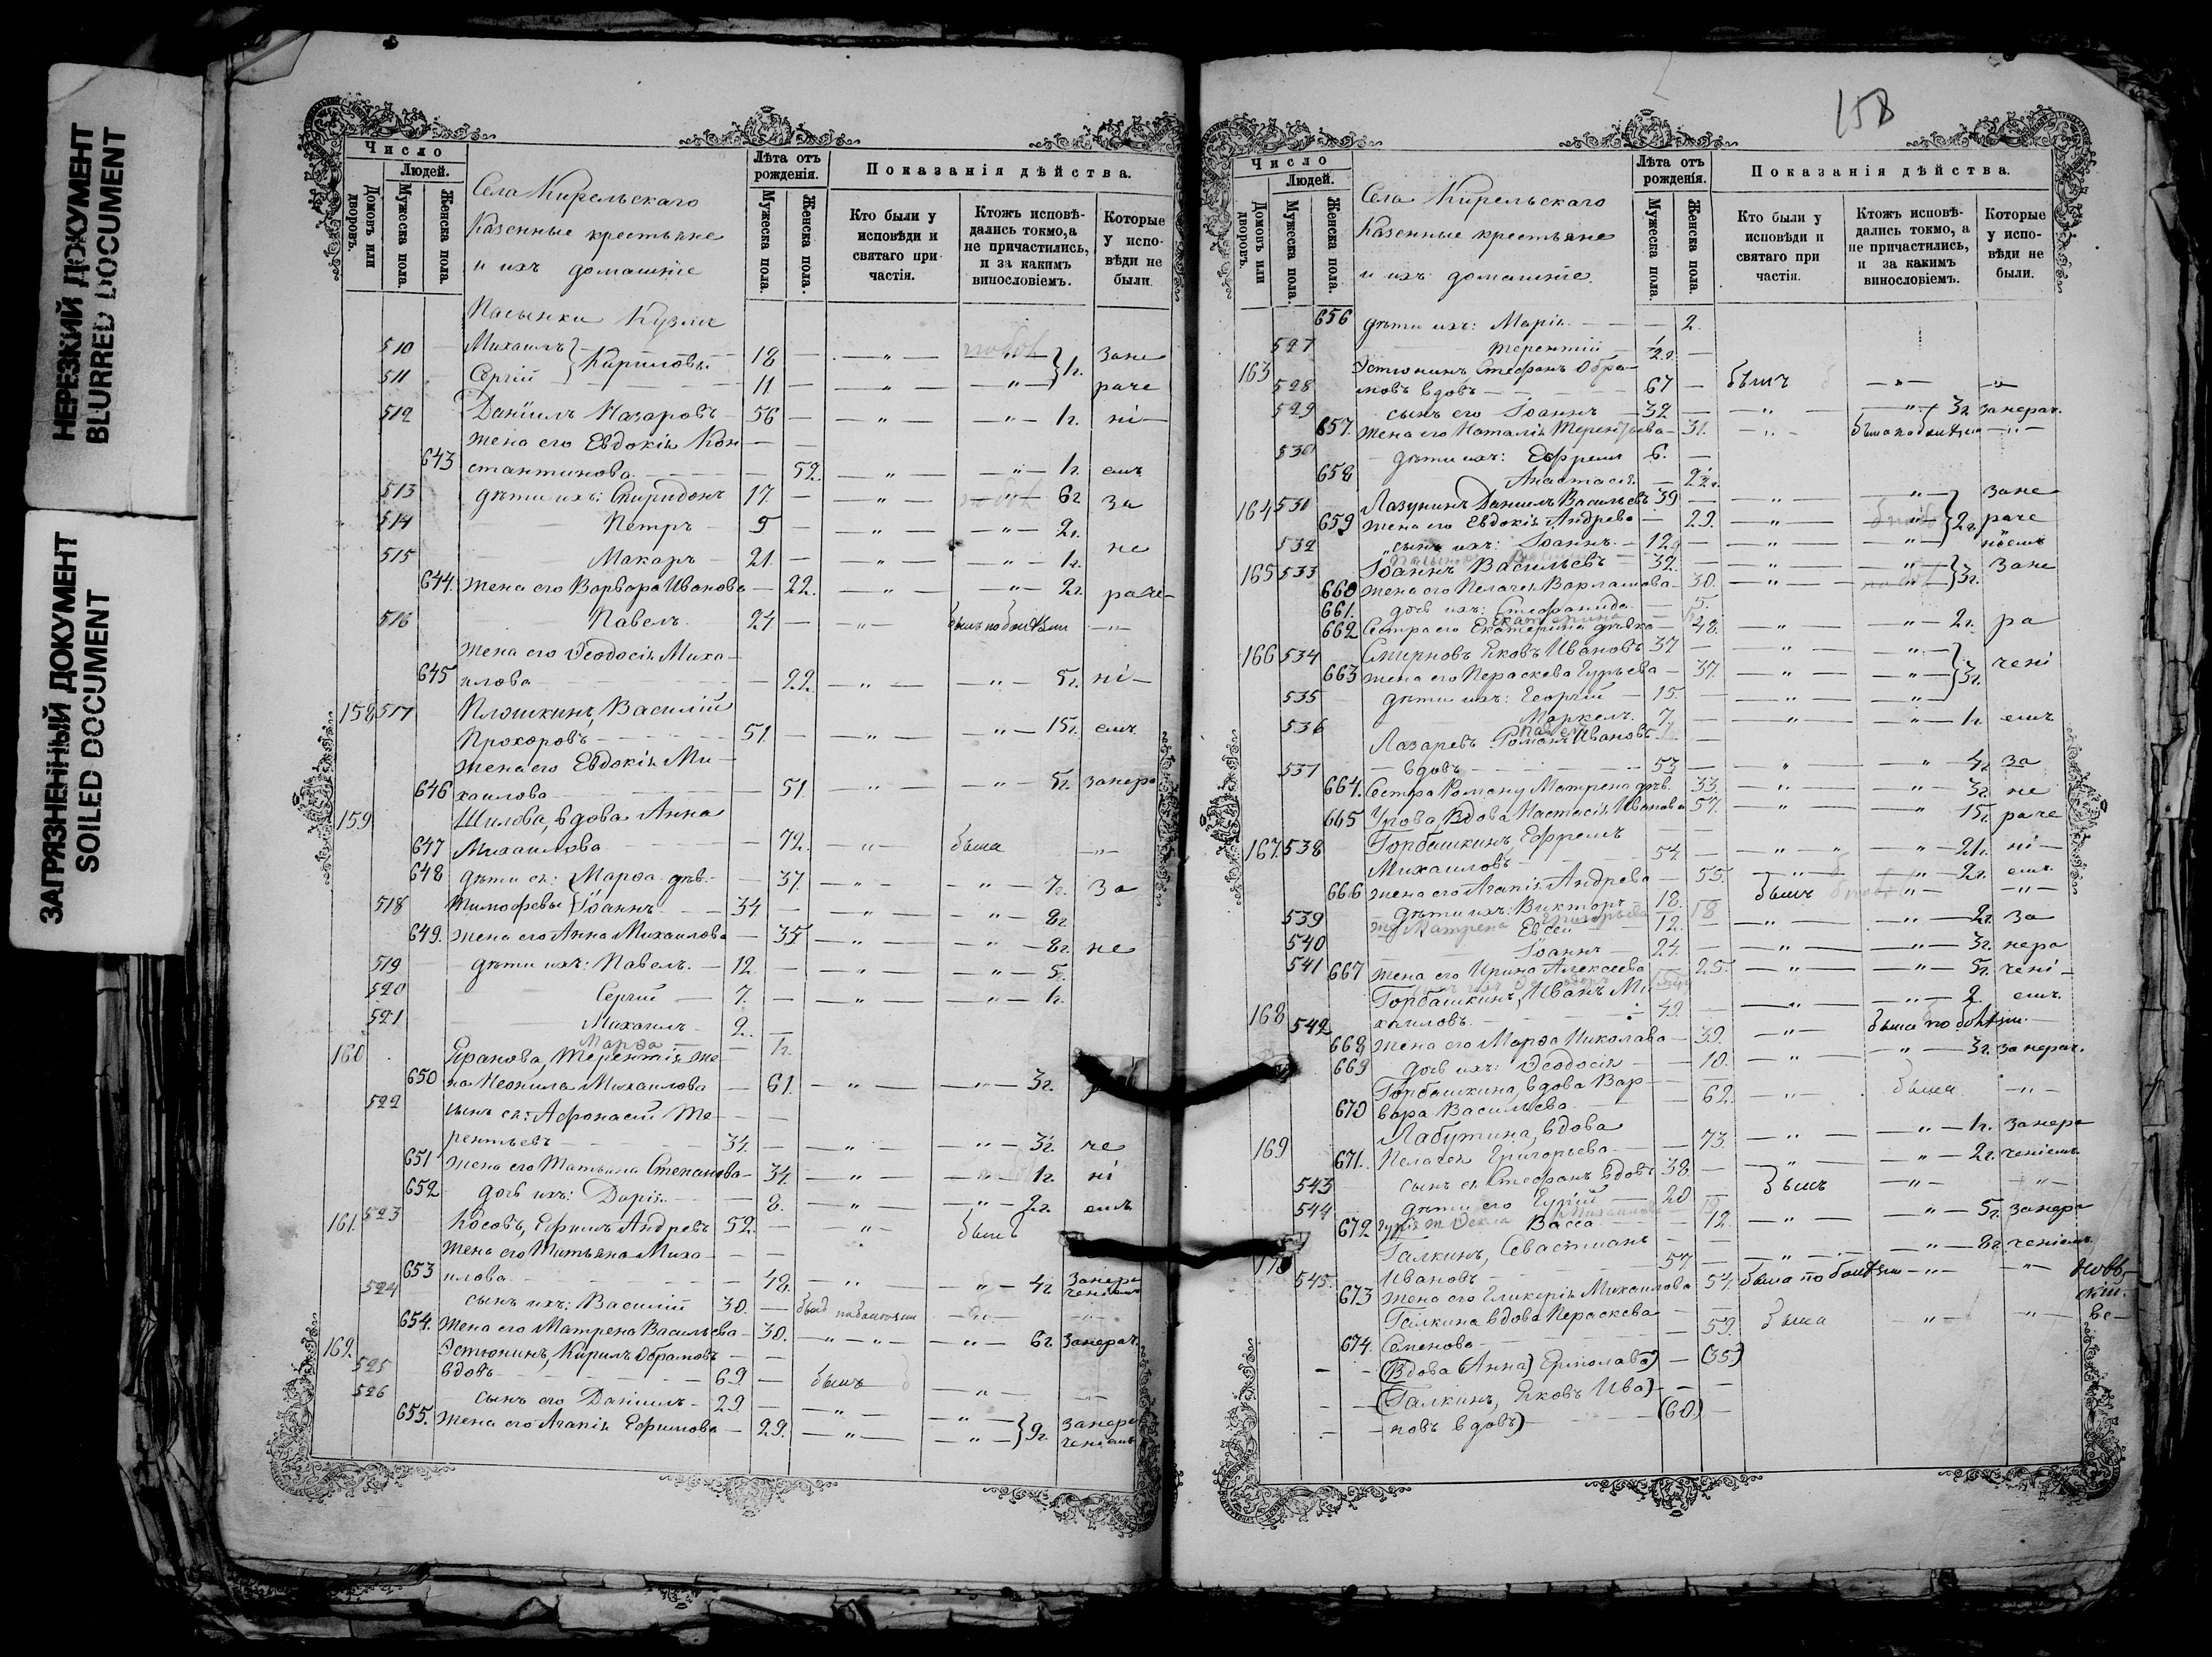 НЕРЕЗКИЙ ДОКУМЕНТ
BLURRED DOCUMENT
ЗАГРЯЗНЕННЫЙ ДОКУМЕНТ
SOILED DOCUMENT
Число
Людей.
Домовъ или дворовъ.
Мужеска пола.
Женска пола.
Села Кирельскаго
Казенные крестьяне
и ихъ домашніе
Лѣта отъ рожденія.
Мужеска пола.
Женска пола.
Показанія дѣйства.
Кто были у исповѣди и святаго причастія.
Ктожъ исповѣдались токмо, а не причастились, и за какимъ винословіемъ.
Которые у исповѣди не были.
Пасынки Кузмы
510 Михаилъ } Кириловы 18 — „ — — „ — } 1г. Зане
511 Сергій 11 — „ — — „ — раче
512 Даніилъ Назаровъ 56 — „ — — „ — 1г. ні—
жена его Евдокія Кон—
643 стантинова 52. — „ — — „ — 1г. емъ
513 дѣти ихъ: Спиридонъ 17. — „ — — „ — 6г За
514 Петръ 9 — „ — — „ — 2г.
515 Макаръ 21. — „ — — „ — 1г. не
644. жена его Варвара Иванова 22. — „ — — „ — 2г. раче—
516 Павелъ 24 — „ — былъ по болѣзни — „ —
жена его Ѳеодосія Миха—
645 илова 22. — „ — — „ — 5г. ні—
158 517 Плошкинъ, Василій
Прохоровъ 51. — „ — — „ — 15г. емъ
жена его Евдокія Ми—
646 хаилова 51. — „ — „ — 5г. занера
159 Шилова, вдова Анна
647 Михаилова 72. — „ — была — „ —
648 дѣти ея: Марѳа дѣв. 37. — „ — — „ — 7г. За
518 Тимофеевы Іоаннъ 34 — „ — — „ — 8г
649. жена его Анна Михаилова 35 — „ — — „ — 8г. не
519 дѣти ихъ: Павелъ. 12. — „ — — „ — 5.
520 Сергій 7. — „ — — „ — 1г.
521 Михаилъ 2.
Марѳа 1г.
160. Яранова, Терентія же—
650 на Неонила Михаилова 61. — „ — — „ — 3г.
522 сынъ ея: Аѳонасій Те—
рентьевъ 34. — „ — — „ — 3г. че
651 жена его Татьяна Степанова 34. — „ — 1г. ні
652 дочь ихъ: Дарія 8. — „ — — „ — 2г. емъ
161. 523 Косовъ, Ефимъ Андреевъ 52. — „ былъ
жена его Татьяна Миха—
653 илова 48. — „ — — „ — 4г Занера ченіемъ
524 сынъ ихъ: Василій 30. — былъ по болѣзни
654. жена его Матрена Васильева 30. — „ — „ — — „ — 6г. Занерач.
162. Эстюнинъ, Кирилъ Обрамовъ
525 вдовъ 69 — былъ — „ — — „ —
526 сынъ его Даніилъ 29. — „ — — „ —
655. жена его Агапія Ефимова 29. — „ — — „ — } 9г. занера ченіемъ
158
Число
Людей.
Домовъ или дворовъ.
Мужеска пола.
Женска пола.
Села Кирельскаго
Казенные крестьяне
и ихъ домашніе.
Лѣта отъ рожденія.
Мужеска пола.
Женска пола.
Показанія дѣйства.
Кто были у исповѣди и святаго причастія.
Ктожъ исповѣдались токмо, а не причастились, и за какимъ винословіемъ.
Которые у исповѣди не были.
656 дѣти ихъ: Марія 2.
527 Терентій ½г.
163 Эстюнинъ Стефанъ Обра—
528 мовъ вдовъ 67 — былъ — „ — — „ —
529 сынъ его Іоаннъ 32 — „ — — „ — 3г занерач.
657. жена его Наталія Терентьева 31. — „ — была по болѣзни — „ —
530 дѣти ихъ: Ефремъ 6. —
658 Анастасія
164 531 Лазунинъ Даніилъ Васильевъ 39 — „ — — „ — Зане
659 жена его Евдокія Андреева 29. — „ — } 2г. раче
532 сынъ ихъ: Іоаннъ. 12. — „ — — „ — ніемъ
165 533 Іоаннъ Васильевъ 32. — „ — — „ — Зане
660 жена его Пелагея Варламова 30. — „ — } 3г.
661. дочь ихъ: Стефанида 5.
Екатерина
662 Сестра его Екатерина дѣвка 48. — „ — — „ — 2г. ра
166 534 Смирновъ Яковъ Ивановъ 37 — „ — — „ —
663 жена его Параскева Гурьева 37. — „ — — „ — } 3г. чені
535 дѣти ихъ: Георгій 15. — „ — — „ —
536 Маркелъ. 7. — „ — — „ — 1г. емъ
Павелъ 1.
Лазаревъ Романъ Ивановъ
537 вдовъ 53 — „ — „ — 4г за
664. Сестра Роману Матрена дѣв. 33. — „ — „ — 3г. не
665 Упова, Вдова Настасія Иванова 57. — „ — „ 15г. раче
167. 538 Горбашкинъ, Ефремъ
Михаиловъ 54. — „ — „ — „ — 21г. ні—
666 жена его Агапія Андреева 55. — „ — „ — 2г. емъ
539 дѣти ихъ: Викторъ 18. — былъ — „ — — „ —
540 Евсей 12. — „ — — „ — 2г. За
541 Іоаннъ 24. — „ — — „ — 3г. нера
667 жена его Ирина Алексеева 25. — „ — — „ — 5г. чені—
Горбашкинъ, Иванъ Ми—
168 542 хаиловъ. 49. — „ — — „ — 2. емъ.
668 жена его Марѳа Николаева 39. — „ — была по болѣзни.
669 дочь ихъ: Ѳеодосія 10. — „ — — „ — 3г. занерач.
Горбашкина, вдова Вар—
670 вара Васильева 62. — „ — была — „ —
169 Лабутина, вдова
671. Пелагея Григорьева 73. — „ — — „ — 1г. Занера
543 сынъ ея Стефанъ вдовъ 38. — „ — — „ — 2г. ченіемъ
544 дѣти его Гурій 20 — былъ — „ — — „ —
672 Васса 12. — „ — — „ — 5г. Занера
170 Галкинъ, Севастіанъ
545. Ивановъ 57 — „ — — „ — 8г ченіемъ
673 жена его Гликерія Михаилова 54. была по болѣзни — „ — — „ —
Галкина вдова Параскева
674. Семенова 59. была — „ — — „ —
(Вдова (Анна) Ермолава) (35)
(Галкинъ, Яковъ Ива)—
новъ вдовъ) (60)